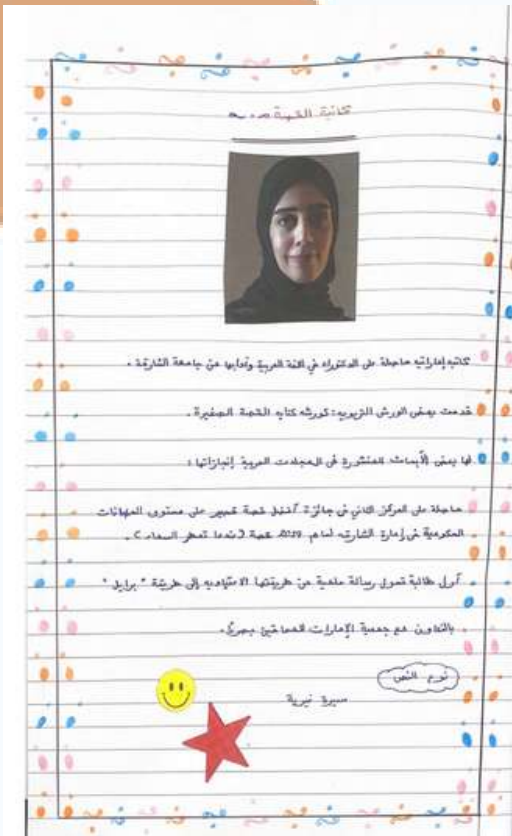 كاتبة القصة
كاتبه إماراتيه حاصلة على الدكتوراه في اللغة العربية وآدابها من جامعة الشارقة .
قدمت بعض الورش التربويه: كورشه كتابه القصة القصيرة .
لها بعض الأبحاث المنشورة في المجلات العربية إنجازاتها :
حاصلة على المركز الثاني في جائزة أفضل قصة قصير على مستوى الجهات
الحكومية في إمارة الشارقه لعام 2019 قصة (عندما تمطر السماء ) .
أول طالبة تحول رسالة علمية من طريقتها الاعتياديه إلى طريقة " برايل "
بالتعاون مع جمعية الإمارات للمعاقين بصريًا .
نوع النص
سيرة غيرية